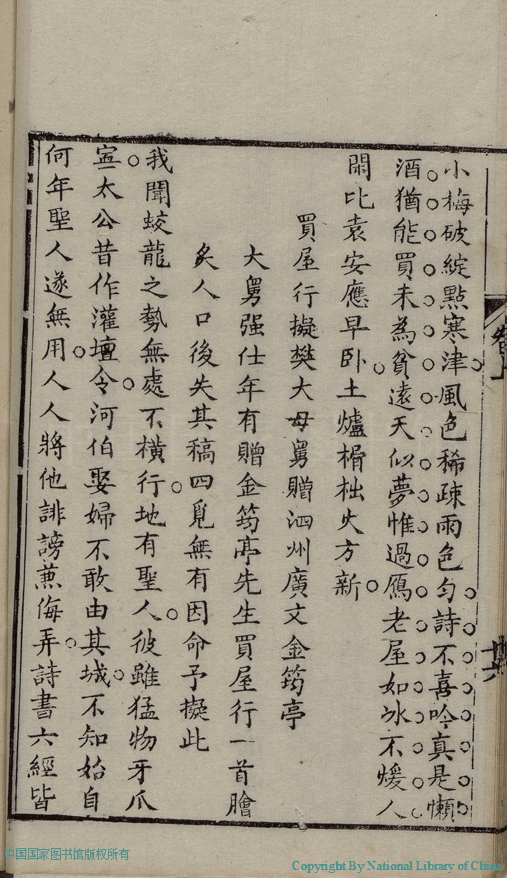 小梅破綻點寒津風色稀疎雨色勻詩不喜吟真是懶
酒猶能買未為貧遠天似夢惟過鴈老屋如冰不煖人
閑比袁安應早卧土爐榾柮火方新
買屋行擬樊大母舅贈泗州廣文金筠亭
大舅强仕年有贈金筠亭先生買屋行一首膾
炙人口後失其稿四覓無有因命予擬此
我聞蛟龍之勢無處不橫行地有聖人彼雖猛物牙爪
寧太公昔作灌壇令河伯娶婦不敢由其城不知始自
何年聖人遂無用人人將他誹謗蒹侮弄詩書六經皆
廿六
中国国家图书馆版权所有
Copyright By National Library of China